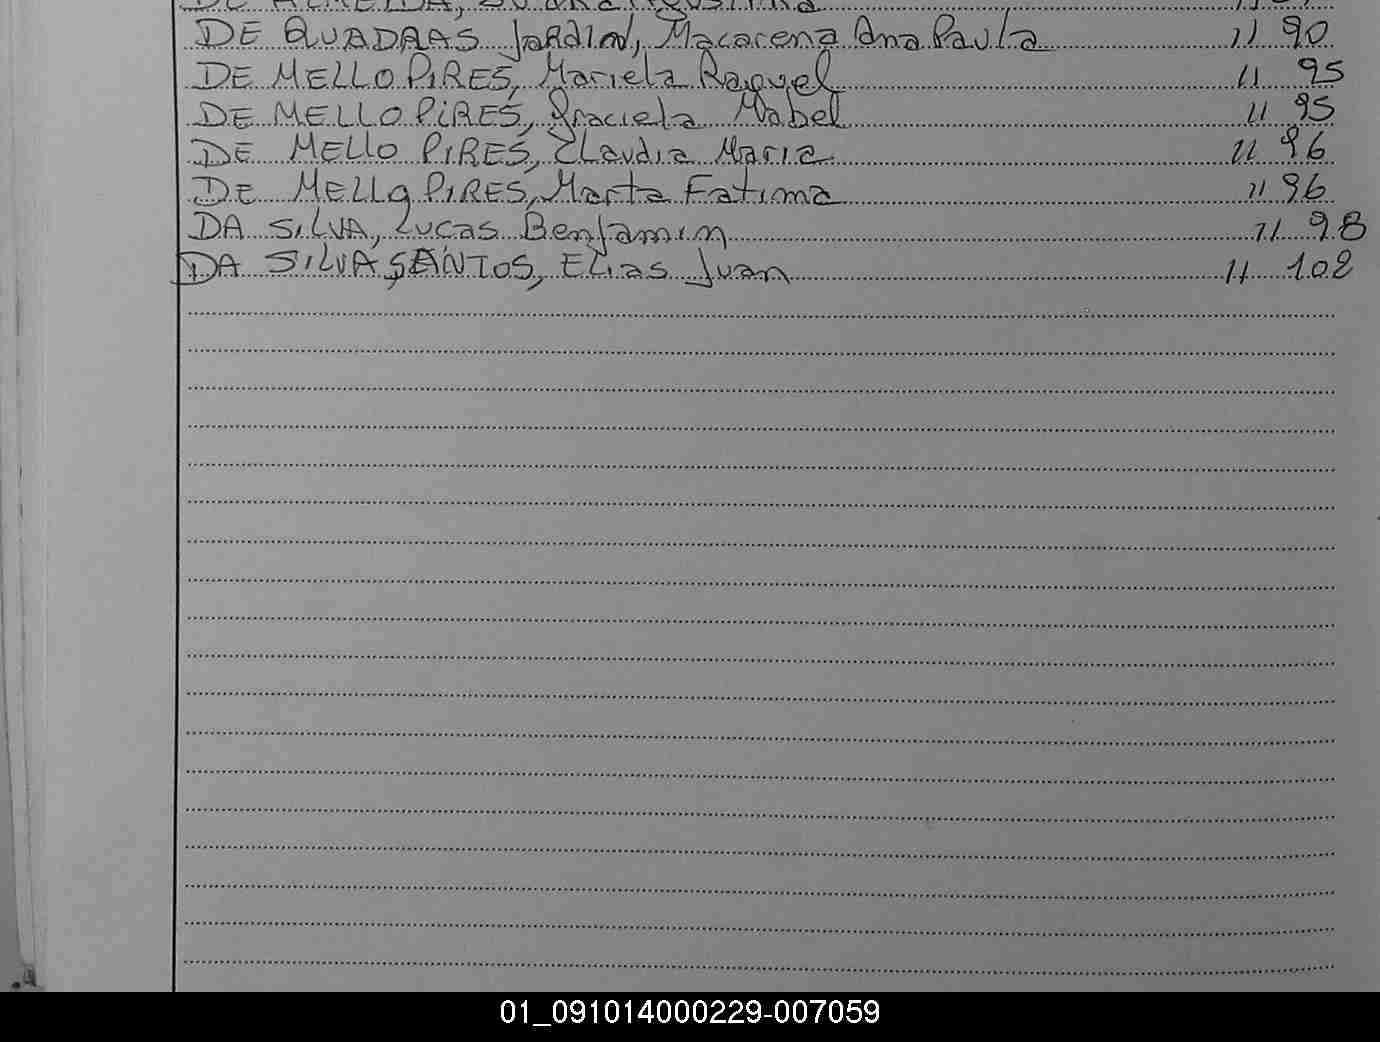 DE ALMEIDA,
DE QUADRAS Jardin, Macarena Ana Paula 11 90
DE MELLO PIRES, Mariela Raquel 11 95
DE MELLO PIRES, Graciela Mabel 11 95
DE MELLO PIRES, Claudia Maria 11 96
DE MELLO PIRES, Marta Fatima 11 96
DA SILVA, Lucas Benjamin 11 98
DA SILVA SANTOS, Elias Juan 11 102
01_091014000229-007059